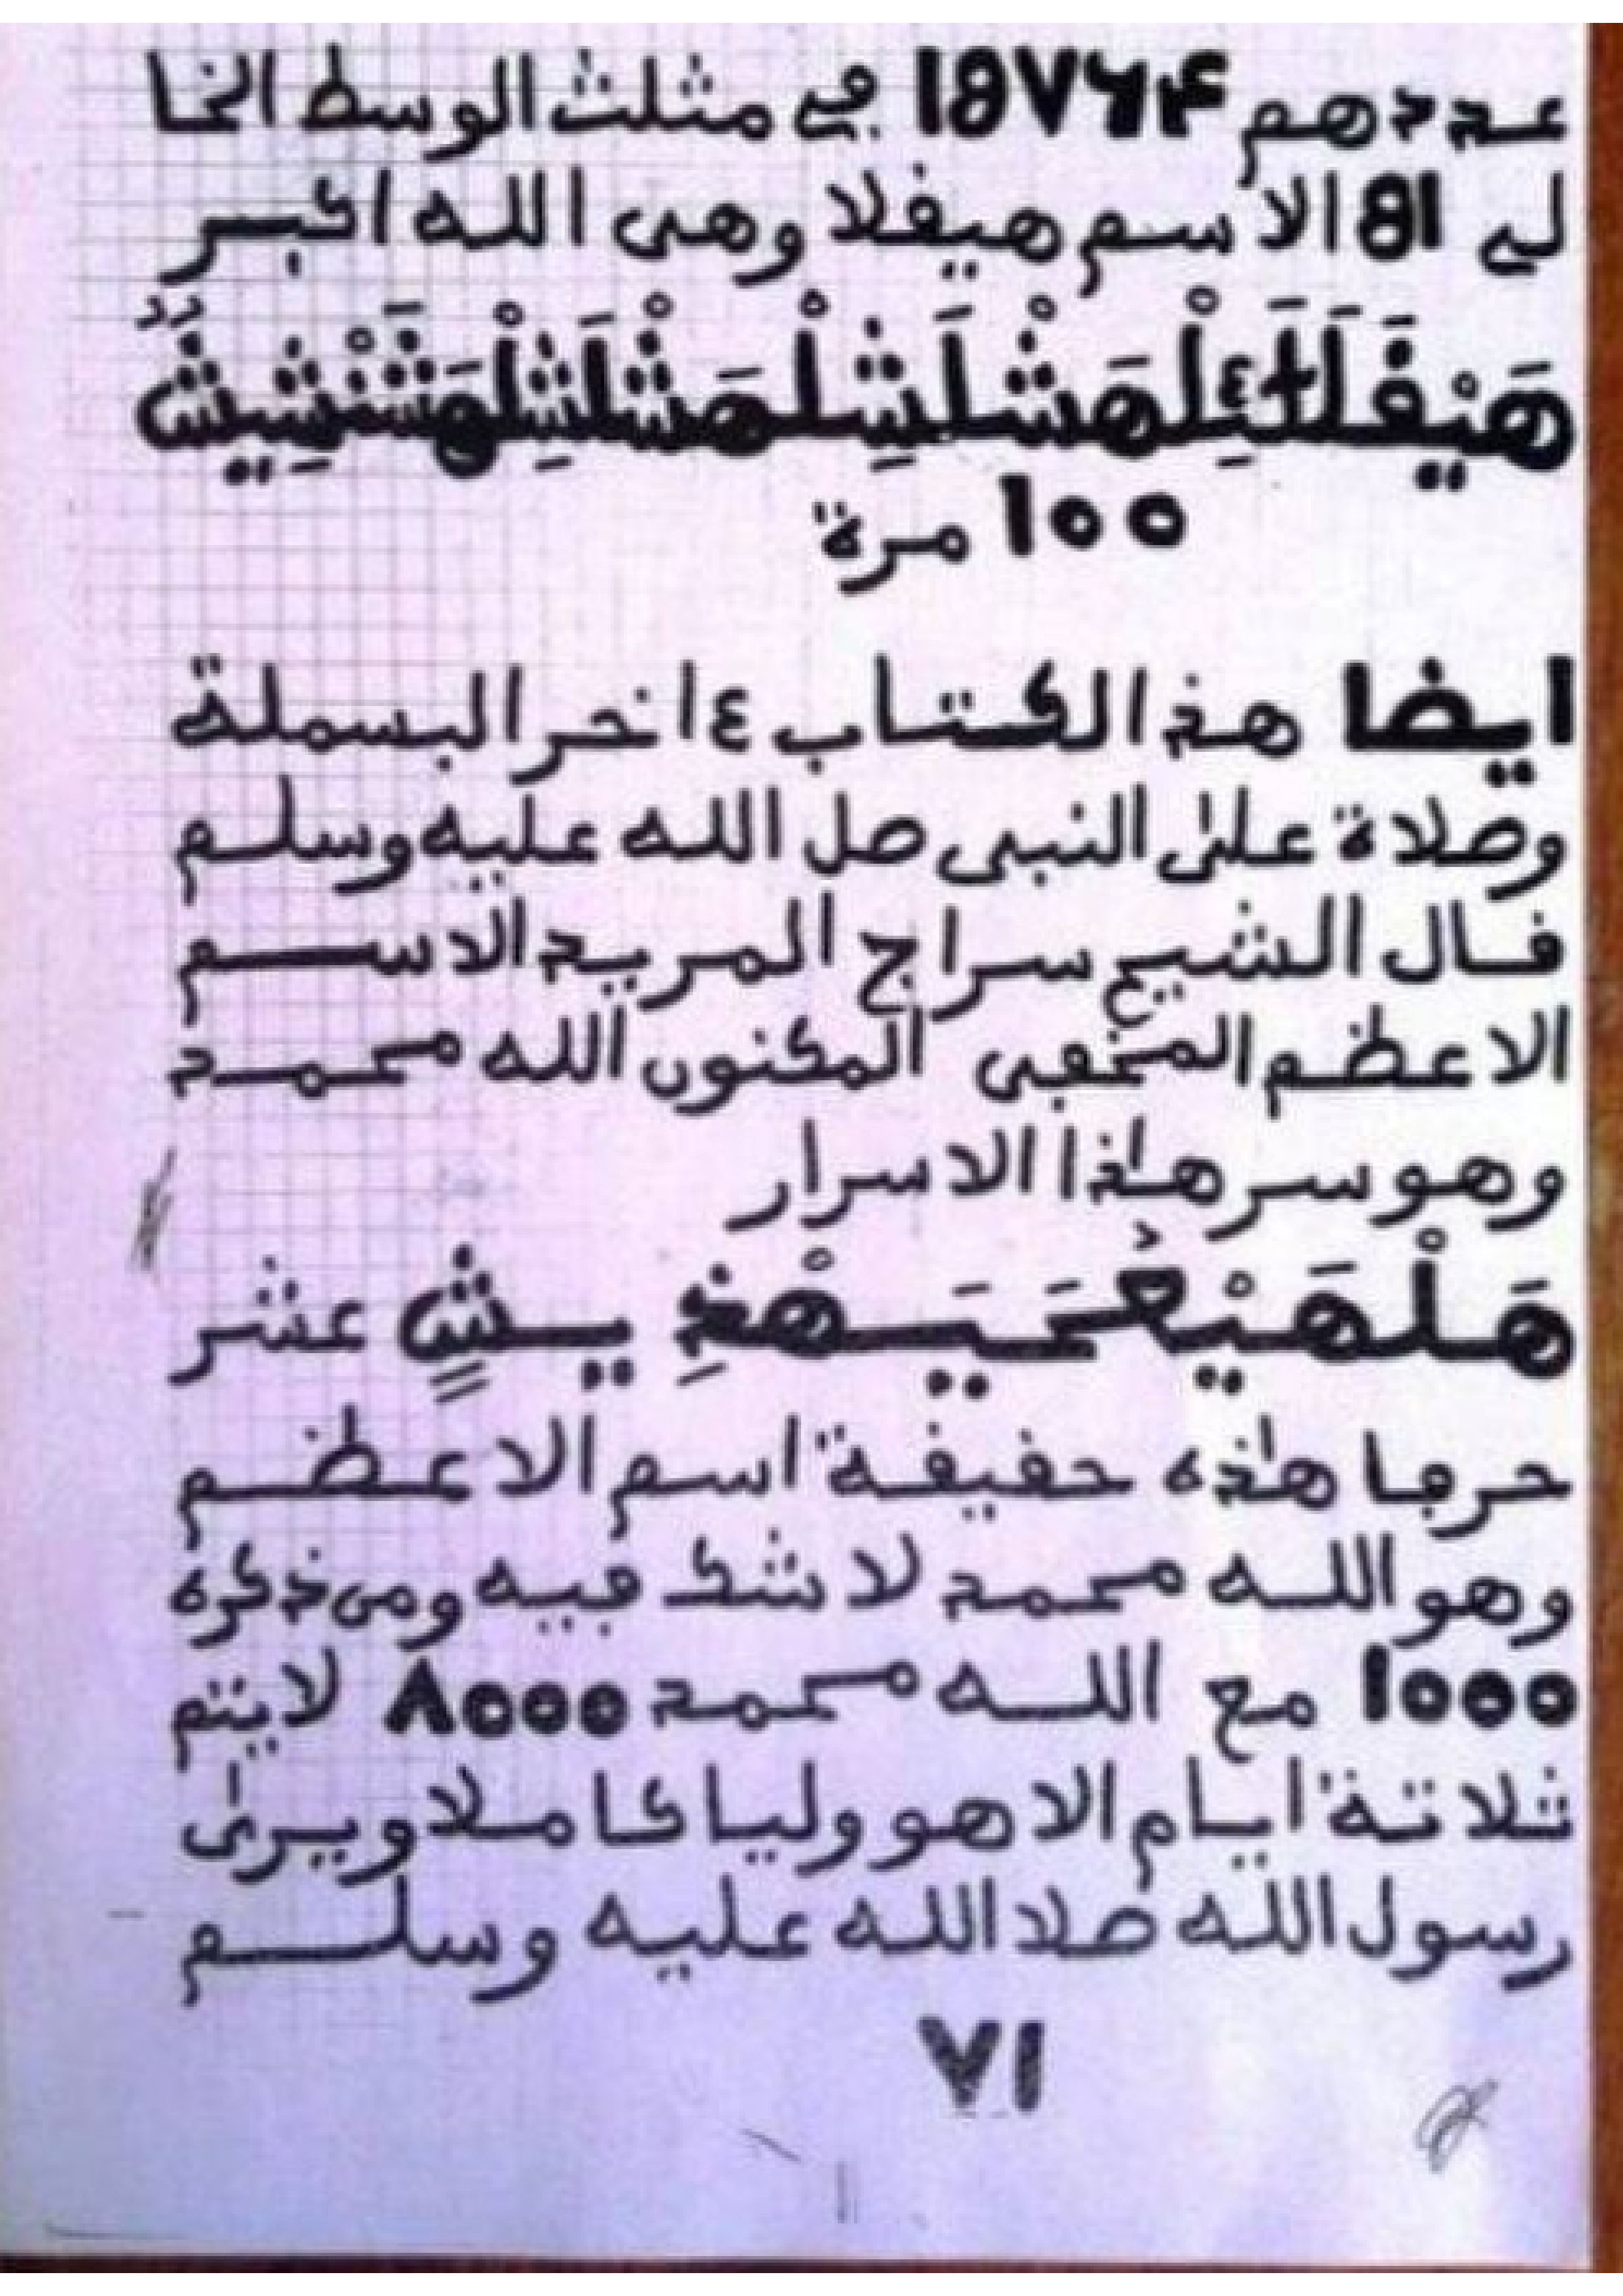 عددهم ١٥٧٦٤ في مثلث الوسط الخا
لي ١٥ الاسم هيفلا وهي الله اكبر
١٠٠ مرة
ايضا هذ الكتاب ٤ اخر البسملة
وصلاة على النبي صل الله عليه وسلم
فال الشيخ سراج المريد الاسم
الاعظم المخفي المكنون الله محمد
وهو سر هٰذا الاسرار
عشر
حرفا هٰذه حفيفة اسم الاعظم
وهو الله محمد لا شك فيه ومن ذكره
١٠٠٠ مع الله محمد ٨٠٠٠ لا يتم
ثلاثة ايام الا هو وليا كاملا ويرى
رسول الله صلا الله عليه وسلم
٧١